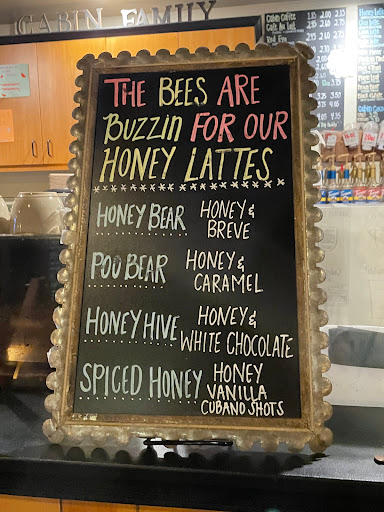 CABIN FAMILY
Cabin Coffee
THE BEES ARE
BUZZIN FOR OUR
HONEY LATTES
HONEY BEAR HONEY &
BREVE
POU BEAR HONEY &
CARAMEL
HONEY HIVE HONEY &
WHITE CHOCOLATE
SPICED HONEY HONEY
VANILLA
CUBANO SHOTS